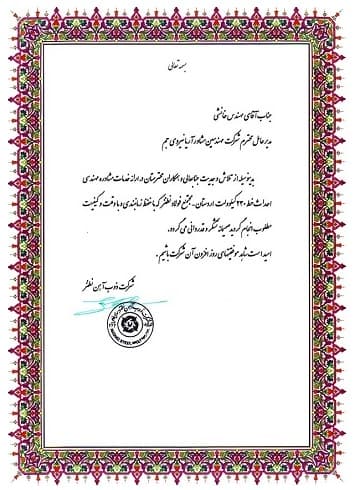 بسمه تعالی
جناب آقای مهندس خانشی
مدیرعامل محترم شرکت مهندسین مشاور آریا نیروی جم
بدینوسیله از تلاش و جدیت جنابعالی و همکاران محترمتان در ارائه خدمات مشاوره مهندسی
احداث خط ۲۳۰ کیلوولت اردستان - مجتمع فولاد نطنز که با حفظ زمانبندی و با دقت و کیفیت
مطلوب انجام گردید صمیمانه تشکر و قدردانی می گردد.
امید است شاهد موفقیتهای روز افزون آن شرکت باشیم.
شرکت ذوب آهن نطنز